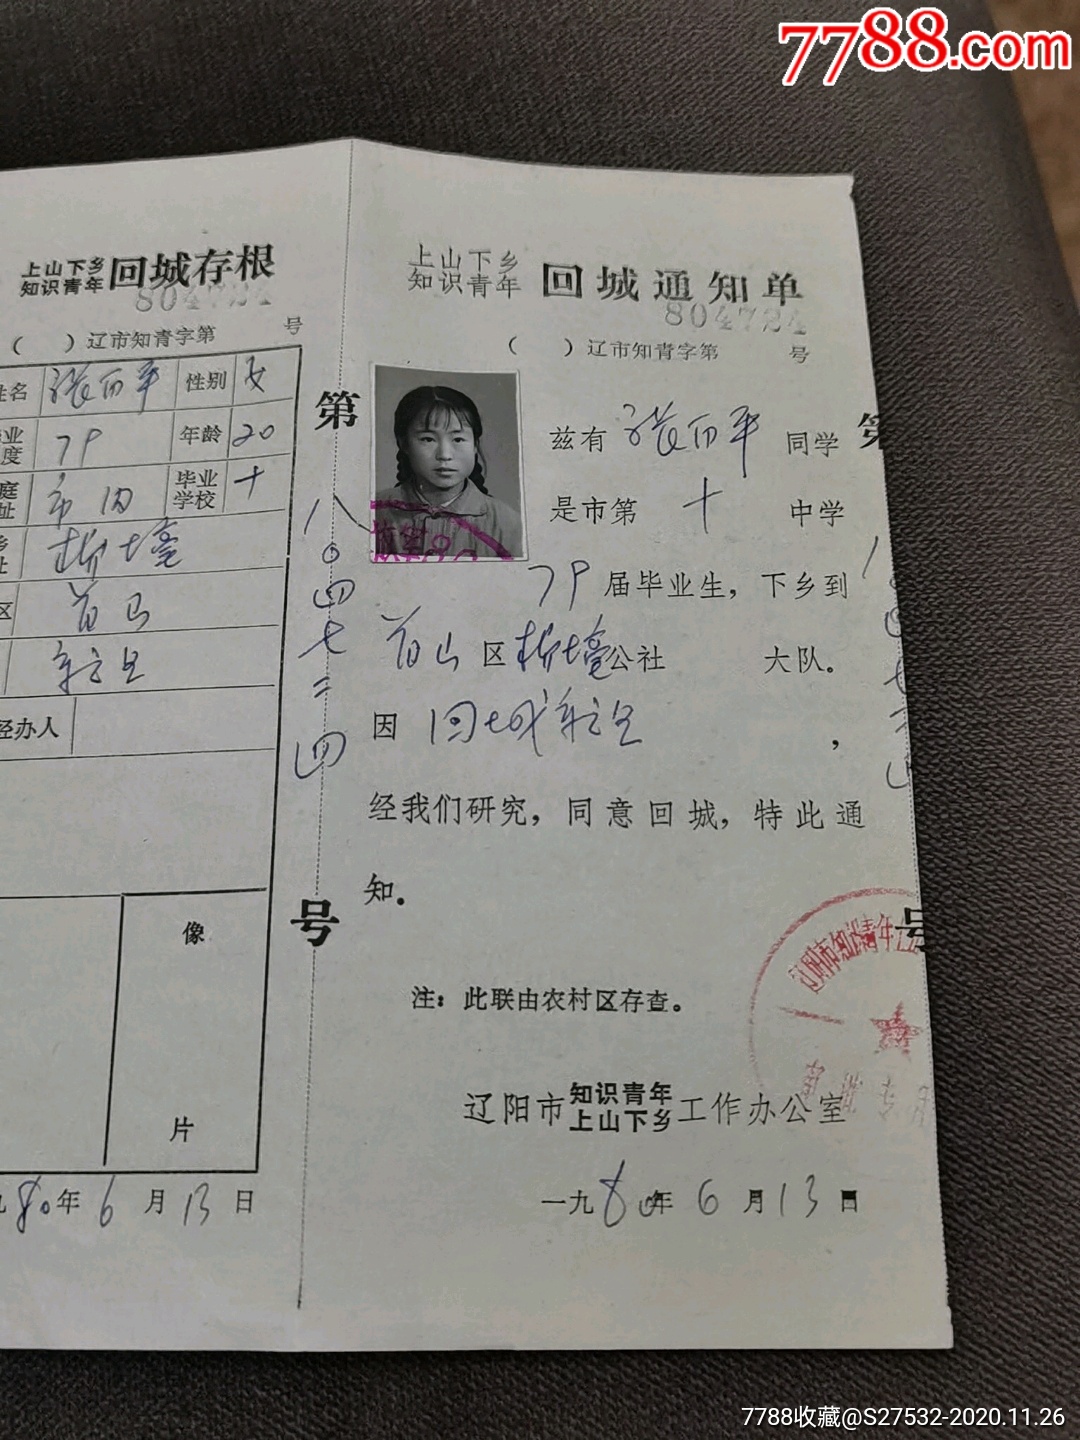 7788.com
上山下乡
知识青年 回城存根
804724
( )辽市知青字第 号
姓名 张丽平 性别 女
业
度 79 年龄 20
庭
址 市内 毕业
学校 十
址
区 首山
经办人
像
片
80年6月13日
第八〇四七二四号
上山下乡
知识青年 回城通知单
804724
( )辽市知青字第 号
兹有 张丽平 同学
是市第 十 中学
79 届毕业生，下乡到
首山 区 公社 大队。
因 回城 ，
经我们研究，同意回城，特此通
知。
注：此联由农村区存查。
辽阳市 知识青年
上山下乡 工作办公室
一九80年6月13日
7788收藏@S27532-2020.11.26